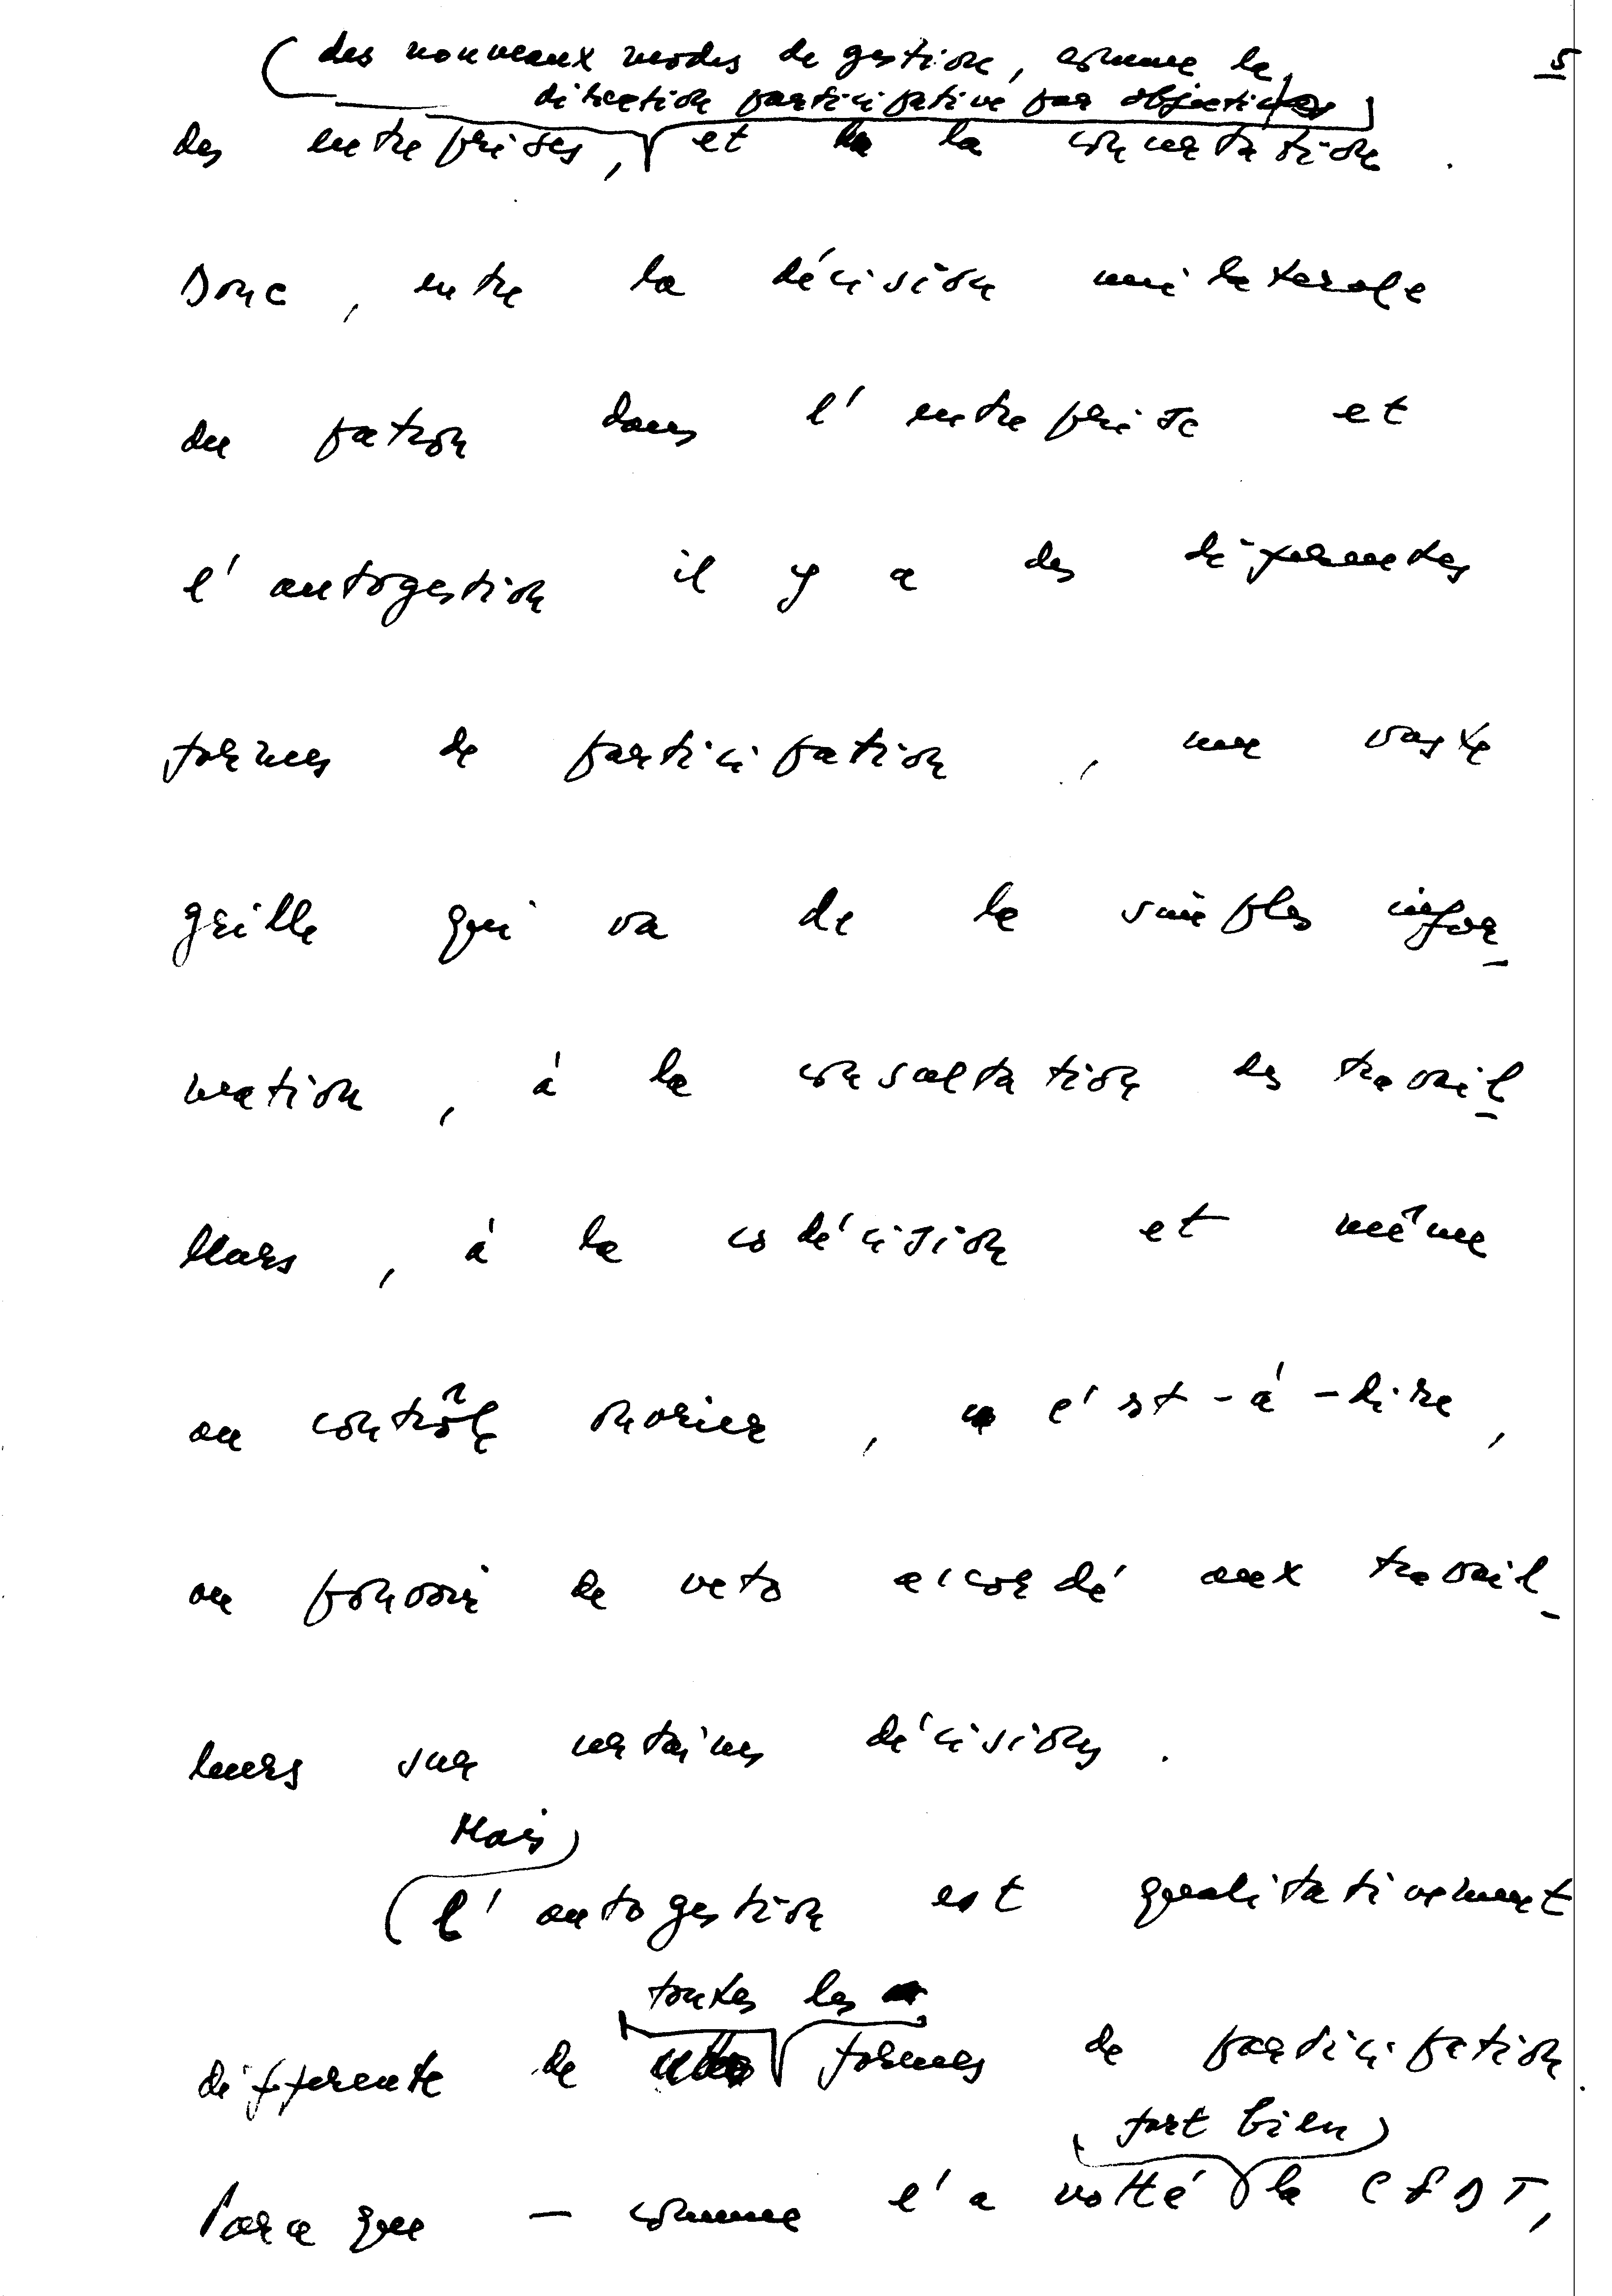 5
des nouveaux modes de gestion, comme la
direction participative par objectifs
des entreprises, et la concertation.
Donc, entre la décision unilaterale
du patron dans l'entreprise et
l'autogestion il y a des diferentes
formes de participation, une vaste
grille qui va de la simples infor-
mation, à la consultation des travail-
leurs, à la codécision et même
au contrôle ouvrier, c'est-à-dire,
au pouvoir de veto accordé aux travail-
leurs sur certaines décisions.
Mais
l'autogestion est qualitativement
toutes les
differente de formes de participation.
fort bien
Parce que — comme l'a notté la CFDT,